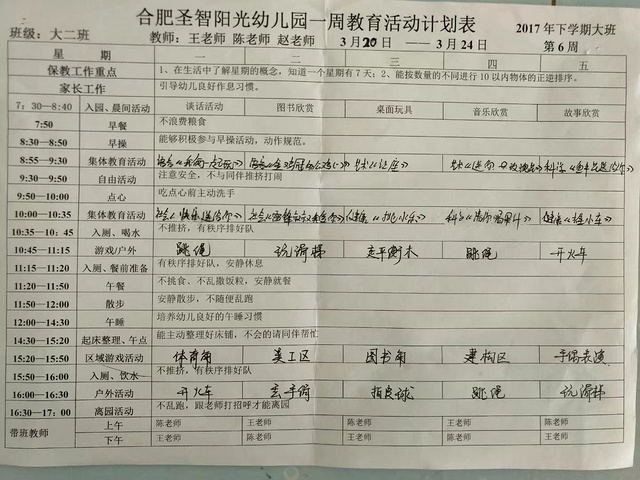 合肥圣智阳光幼儿园一周教育活动计划表
班级：大二班 教师：王老师 陈老师 赵老师 3月20日 —— 3月24日 2017年下学期大班 第6周
星 期 一 二 三 四 五
保教工作重点 1、在生活中了解星期的概念，知道一个星期有7天；2、能按数量的不同进行10以内物体的正逆排序。
家长工作 引导幼儿有良好作息习惯。
7：30—8:40 入园、晨间活动 谈话活动 图书欣赏 桌面玩具 音乐欣赏 故事欣赏
7:50 早餐 不浪费粮食
8:30—8:50 早操 能够积极参与早操活动，动作规范。
8:55—9:30 集体教育活动
9:30—9:50 自由活动 注意安全，不与同伴推挤打闹
9:50—10:00 点心 吃点心前主动洗手
10:00—10:35 集体教育活动
10:35—10：45 入厕、喝水 不推挤，有秩序排好队
10:45—11:15 游戏/户外 跳绳 玩滑梯 走平衡木 跳绳 开火车
11:15—11:20 入厕、餐前准备 有秩序排好队，安静休息
11:20—11:50 午餐 不挑食、不乱撒饭粒，安静就餐
11:50—12:00 散步 安静散步，不随便乱跑
12:00—14:30 午睡 培养幼儿良好的午睡习惯
14:30—15:20 起床整理、午点 能主动整理好床铺，不会的请同伴帮忙
15:20—15:50 区域游戏活动 体育角 美工区 图书角 建构区 手偶表演
15:50—16:00 入厕、饮水 不推挤，有秩序排好队
16:00—16:30 户外活动 开火车 玩手铃 拍皮球 跳绳 玩滑梯
16:30—17：00 离园活动 不乱跑，跟老师打招呼才能离园
带班教师 上午 陈老师 王老师 陈老师 王老师 陈老师
下午 王老师 陈老师 王老师 陈老师 王老师